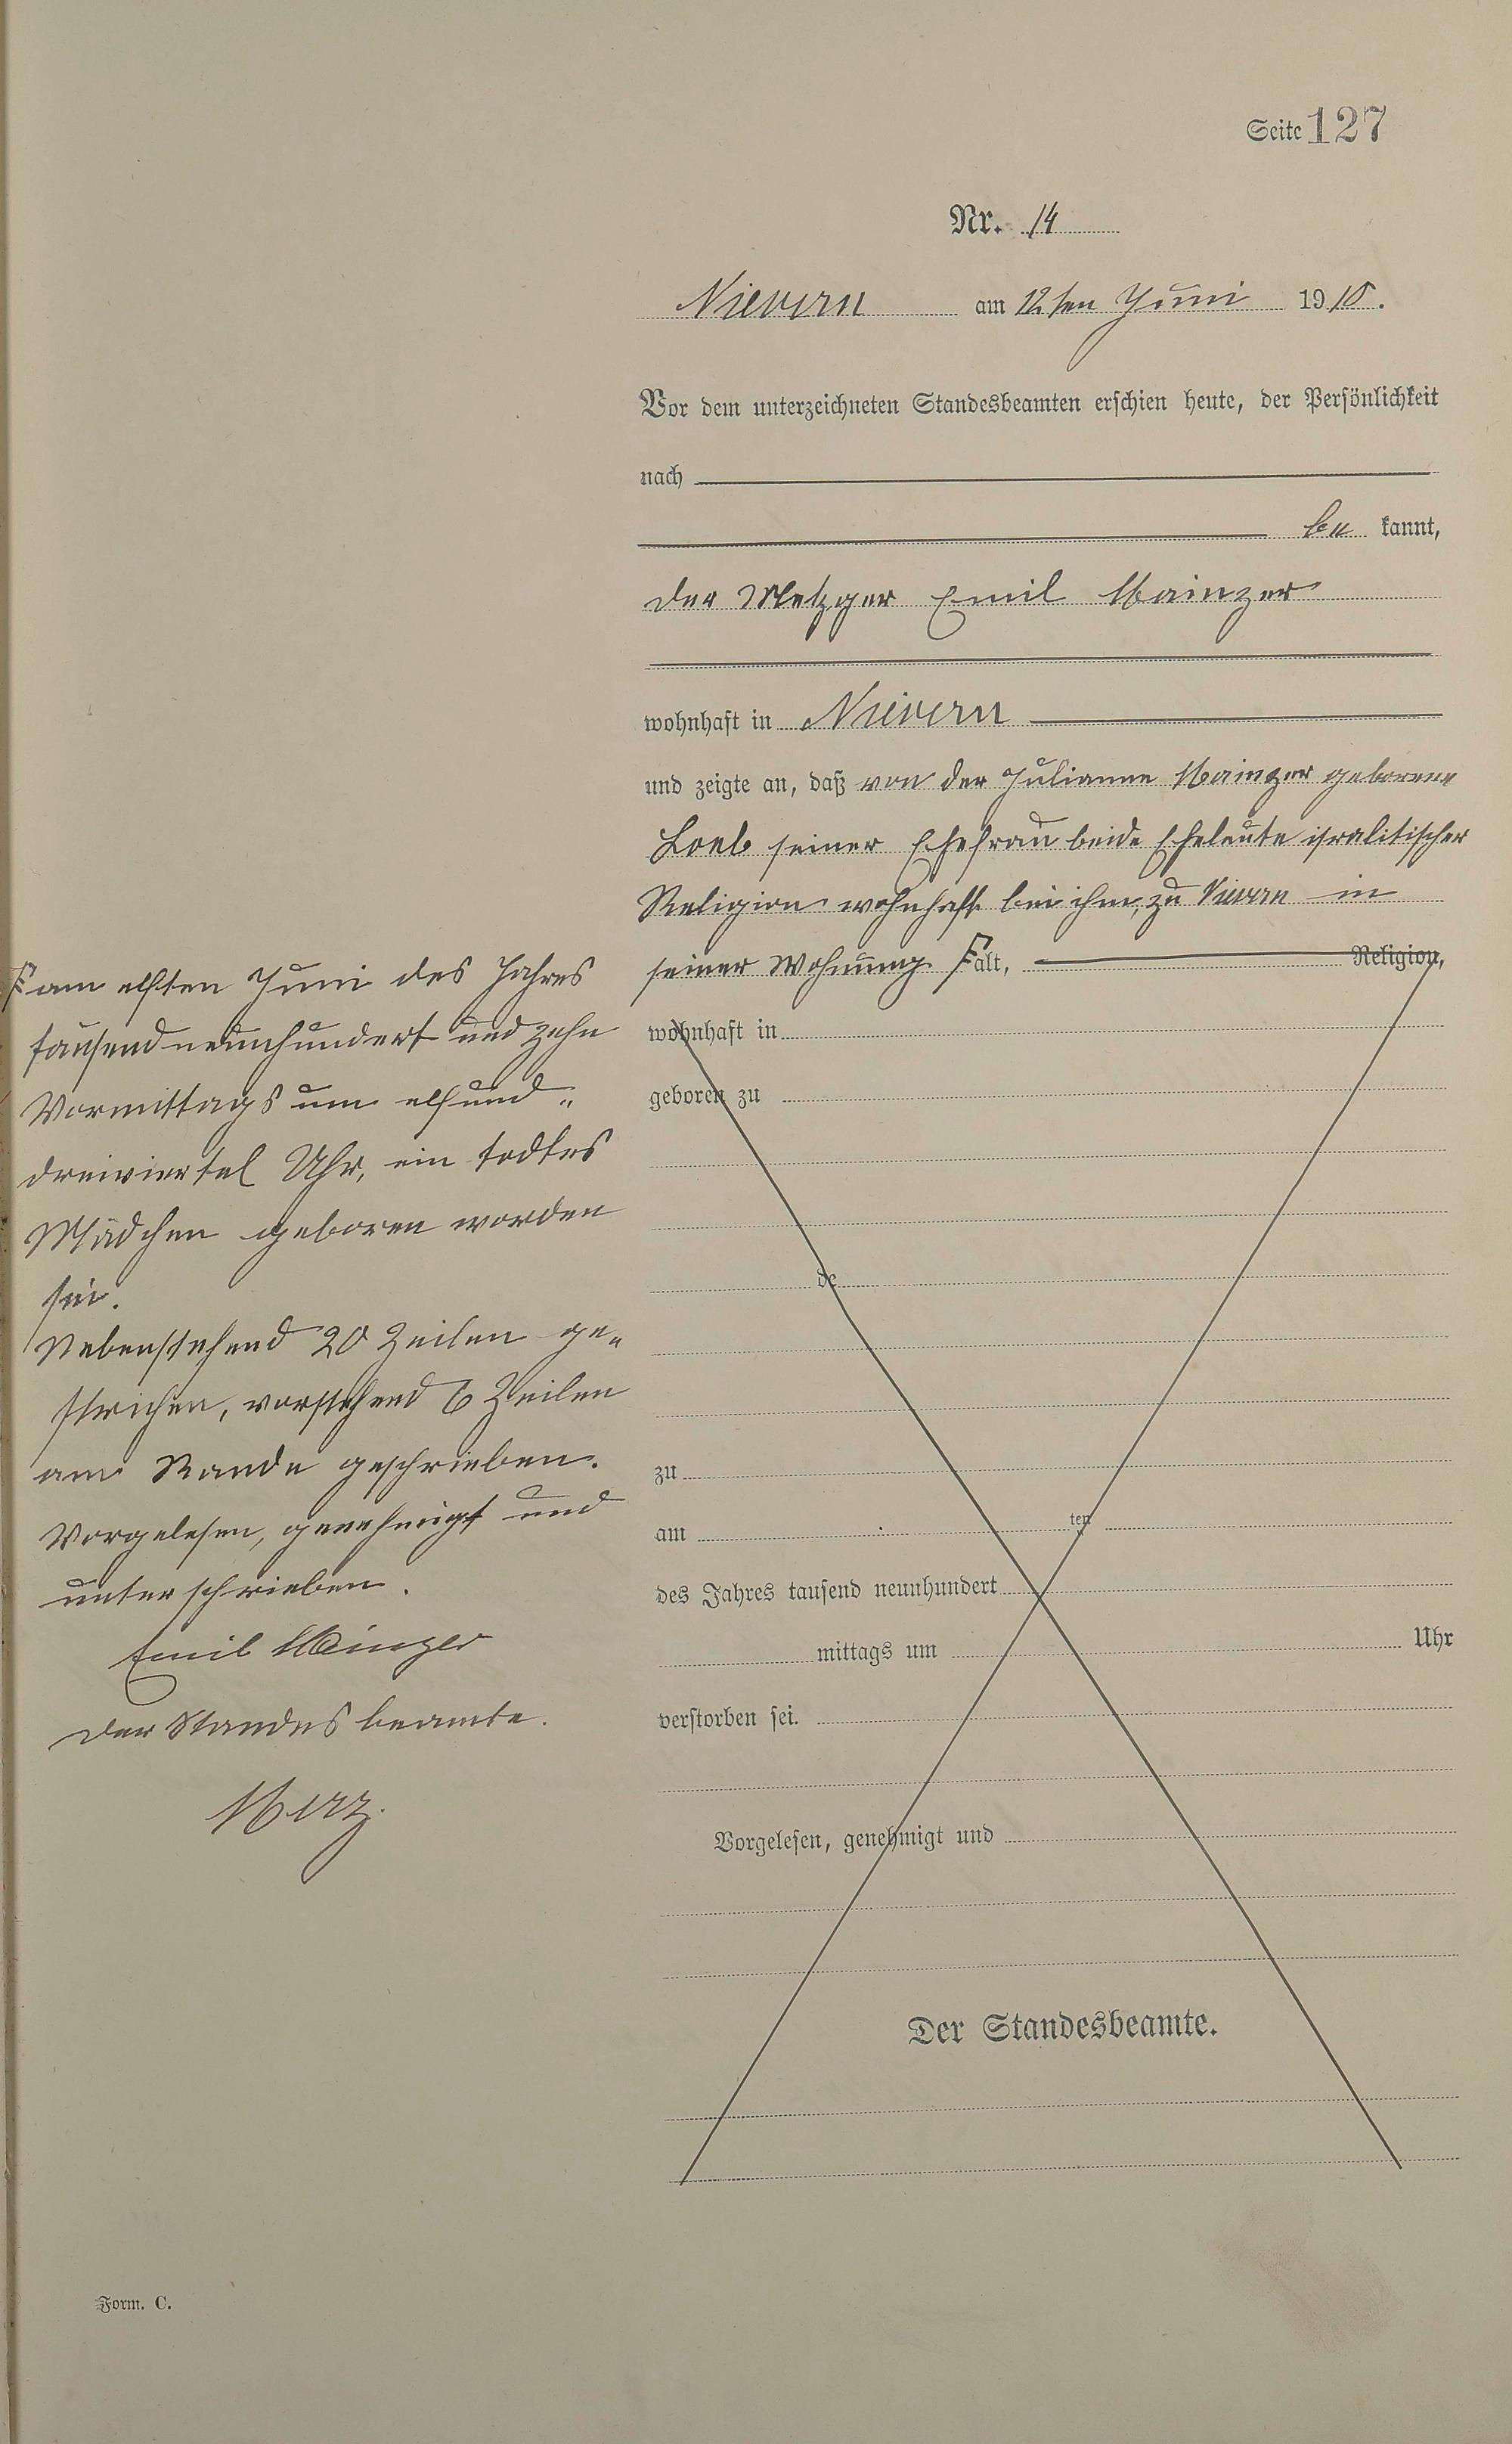 Seite 127
Nr. 14
Nievern am 12ten Juni 1910.
Vor dem unterzeichneten Standesbeamten erschien heute, der Persönlichkeit
nach
be kannt,
der Metzger Emil Mainzer
wohnhaft in Nievern
und zeigte an, daß von der Julianne Mainzer geborene
Loeb seiner Ehefrau beide Eheleute isralitischer
Religion wohnhaft bei ihm, zu Nievern in
seiner Wohnung F alt, Religion,
wohnhaft in
geboren zu
de
zu
am ten
des Jahres tausend neunhundert
mittags um Uhr
verstorben sei.
Vorgelesen, genehmigt und
Der Standesbeamte.
F am elften Juni des Jahres
tausend neunhundert und zehn
Vormittags um elfund„
dreiviertel Uhr, ein todtes
Mädchen geboren worden
sei.
Nebenstehend 20 Zeilen ge„
strichen, vorstehend 6 Zeilen
am Rande geschrieben.
Vorgelesen, genehmigt und
unterschrieben.
Emil Mainzer
Der Standesbeamte.
Merz.
Form. C.